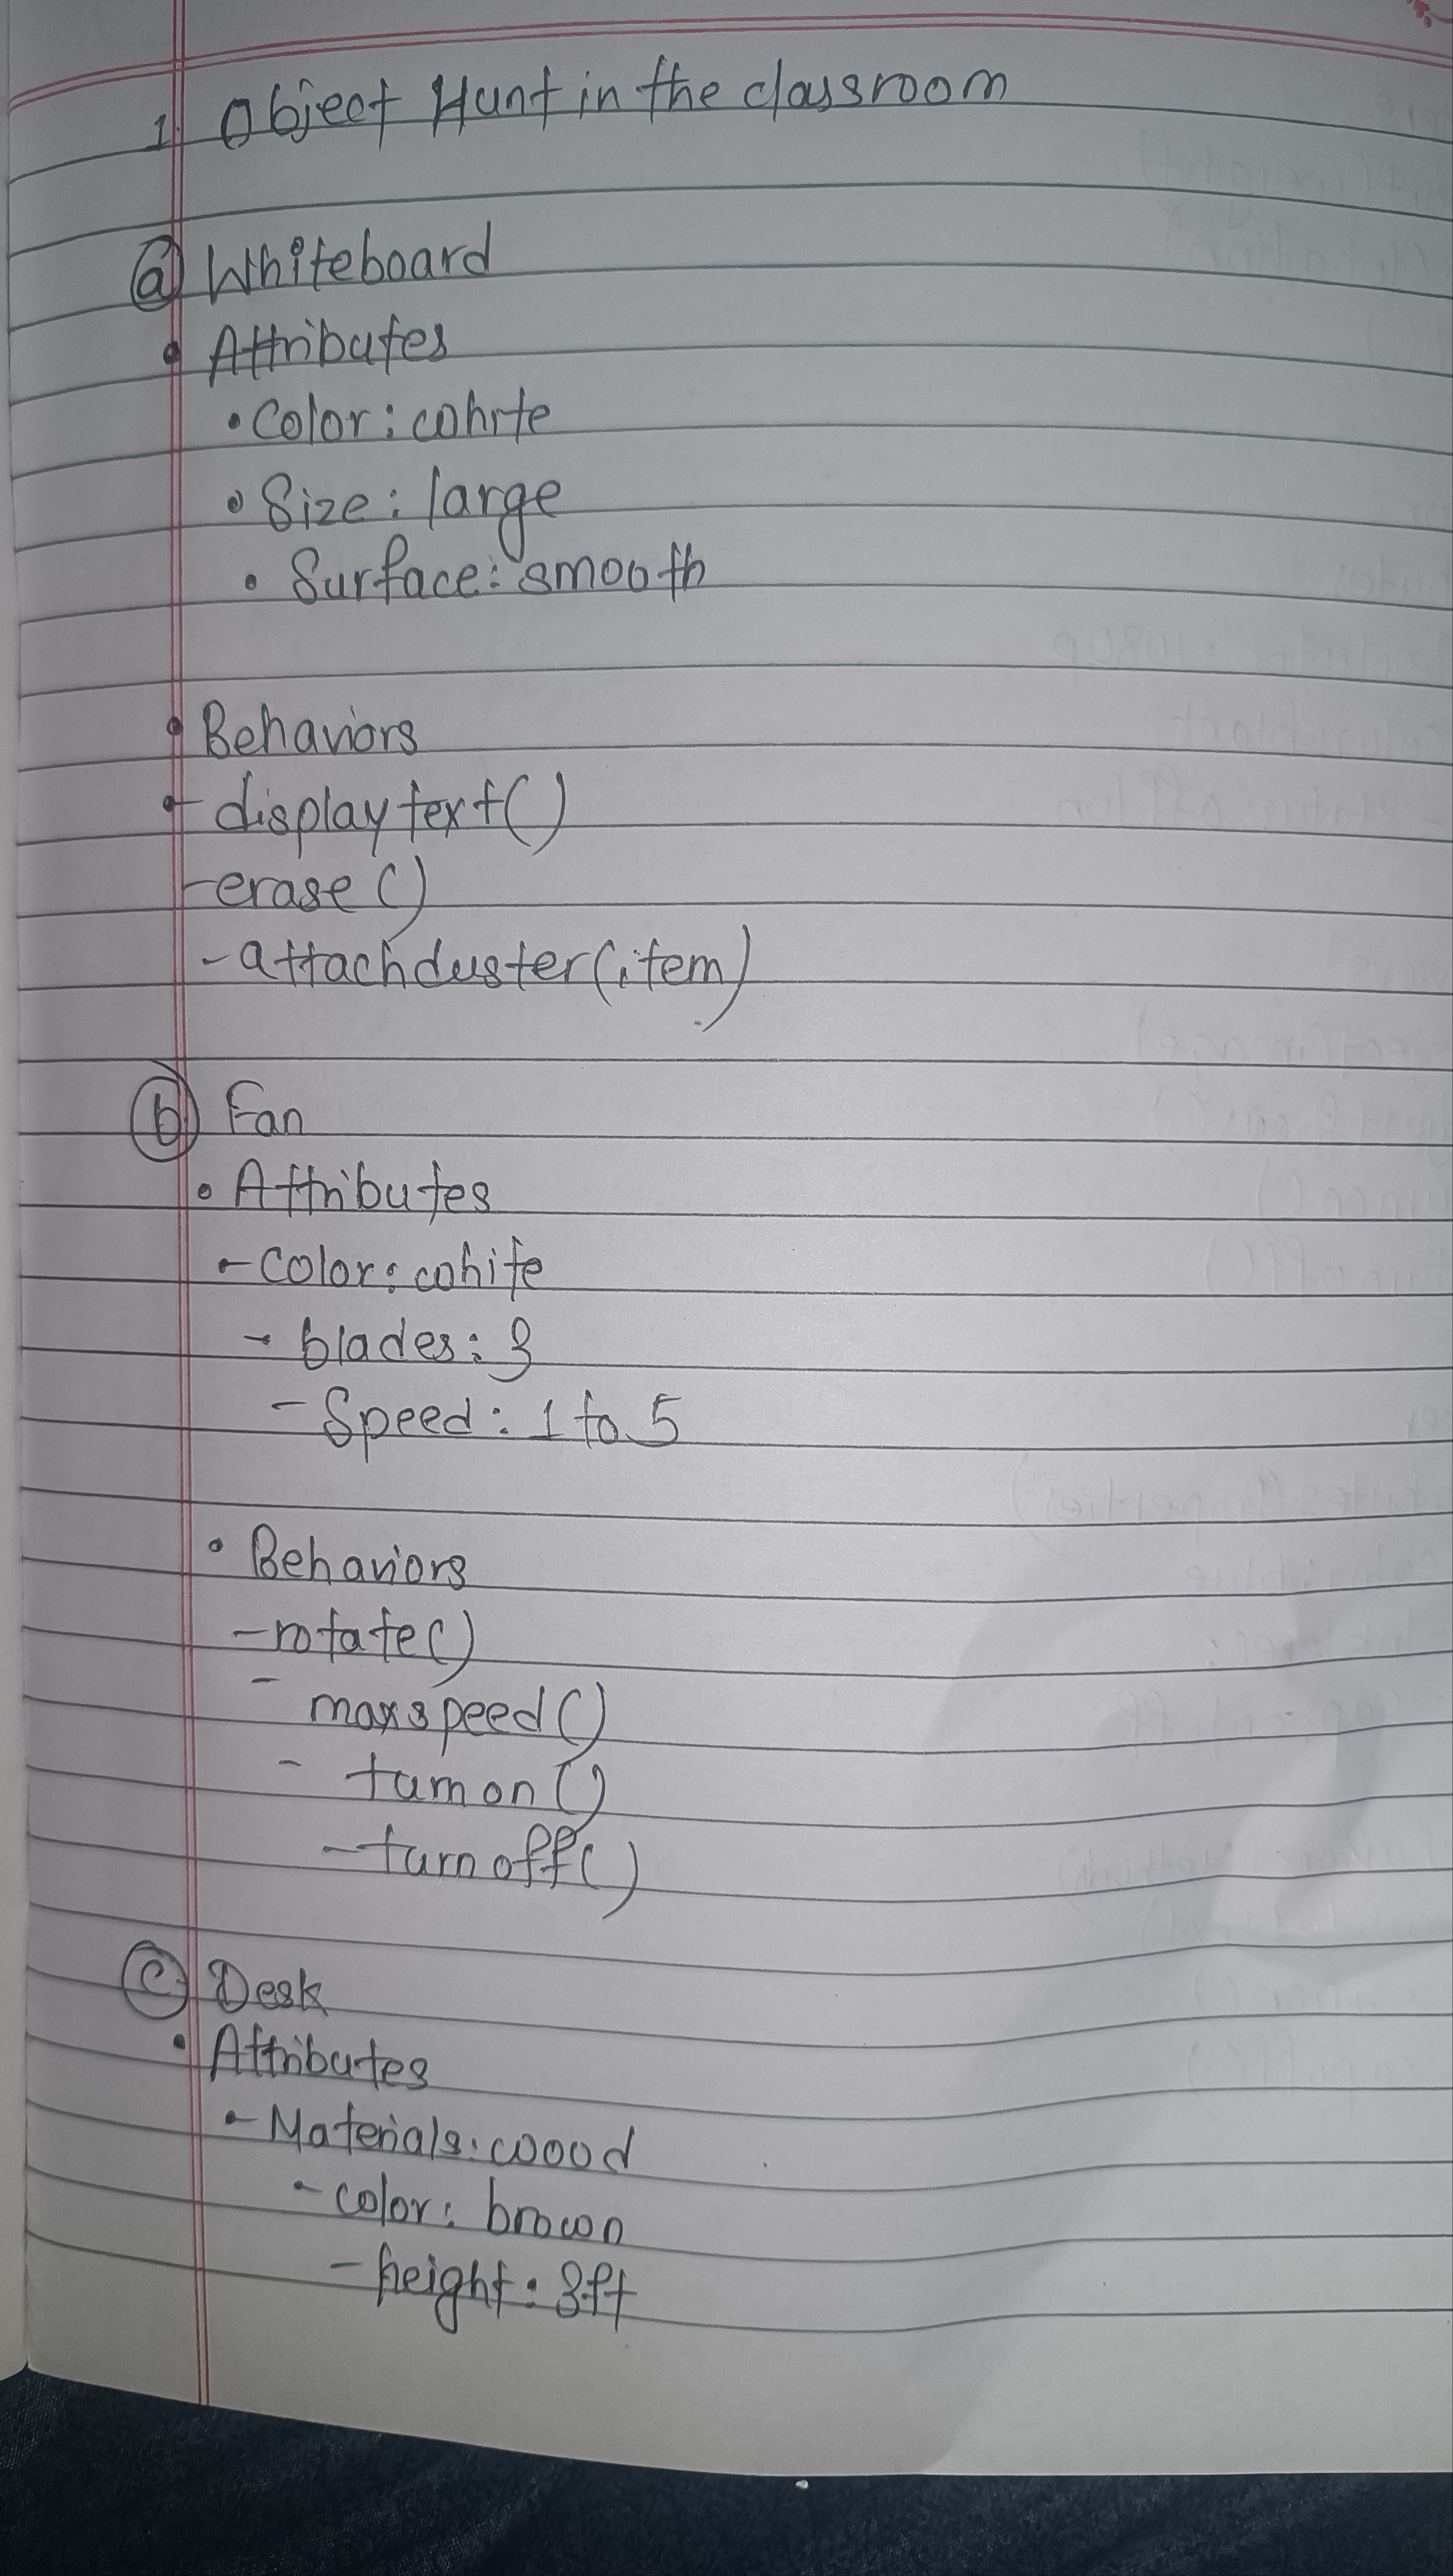 1. Object Hunt in the classroom
(a) Whiteboard
• Attributes
• Color: white
• Size: large
• Surface: smooth
• Behaviors
- displaytext()
- erase()
- attachduster(item)
(b) Fan
• Attributes
- Color: white
- blades: 3
- Speed: 1 to 5
• Behaviors
- rotate()
- maxspeed()
- turnon()
- turnoff()
(c) Desk
• Attributes
- Materials: wood
- color: brown
- height: 3ft